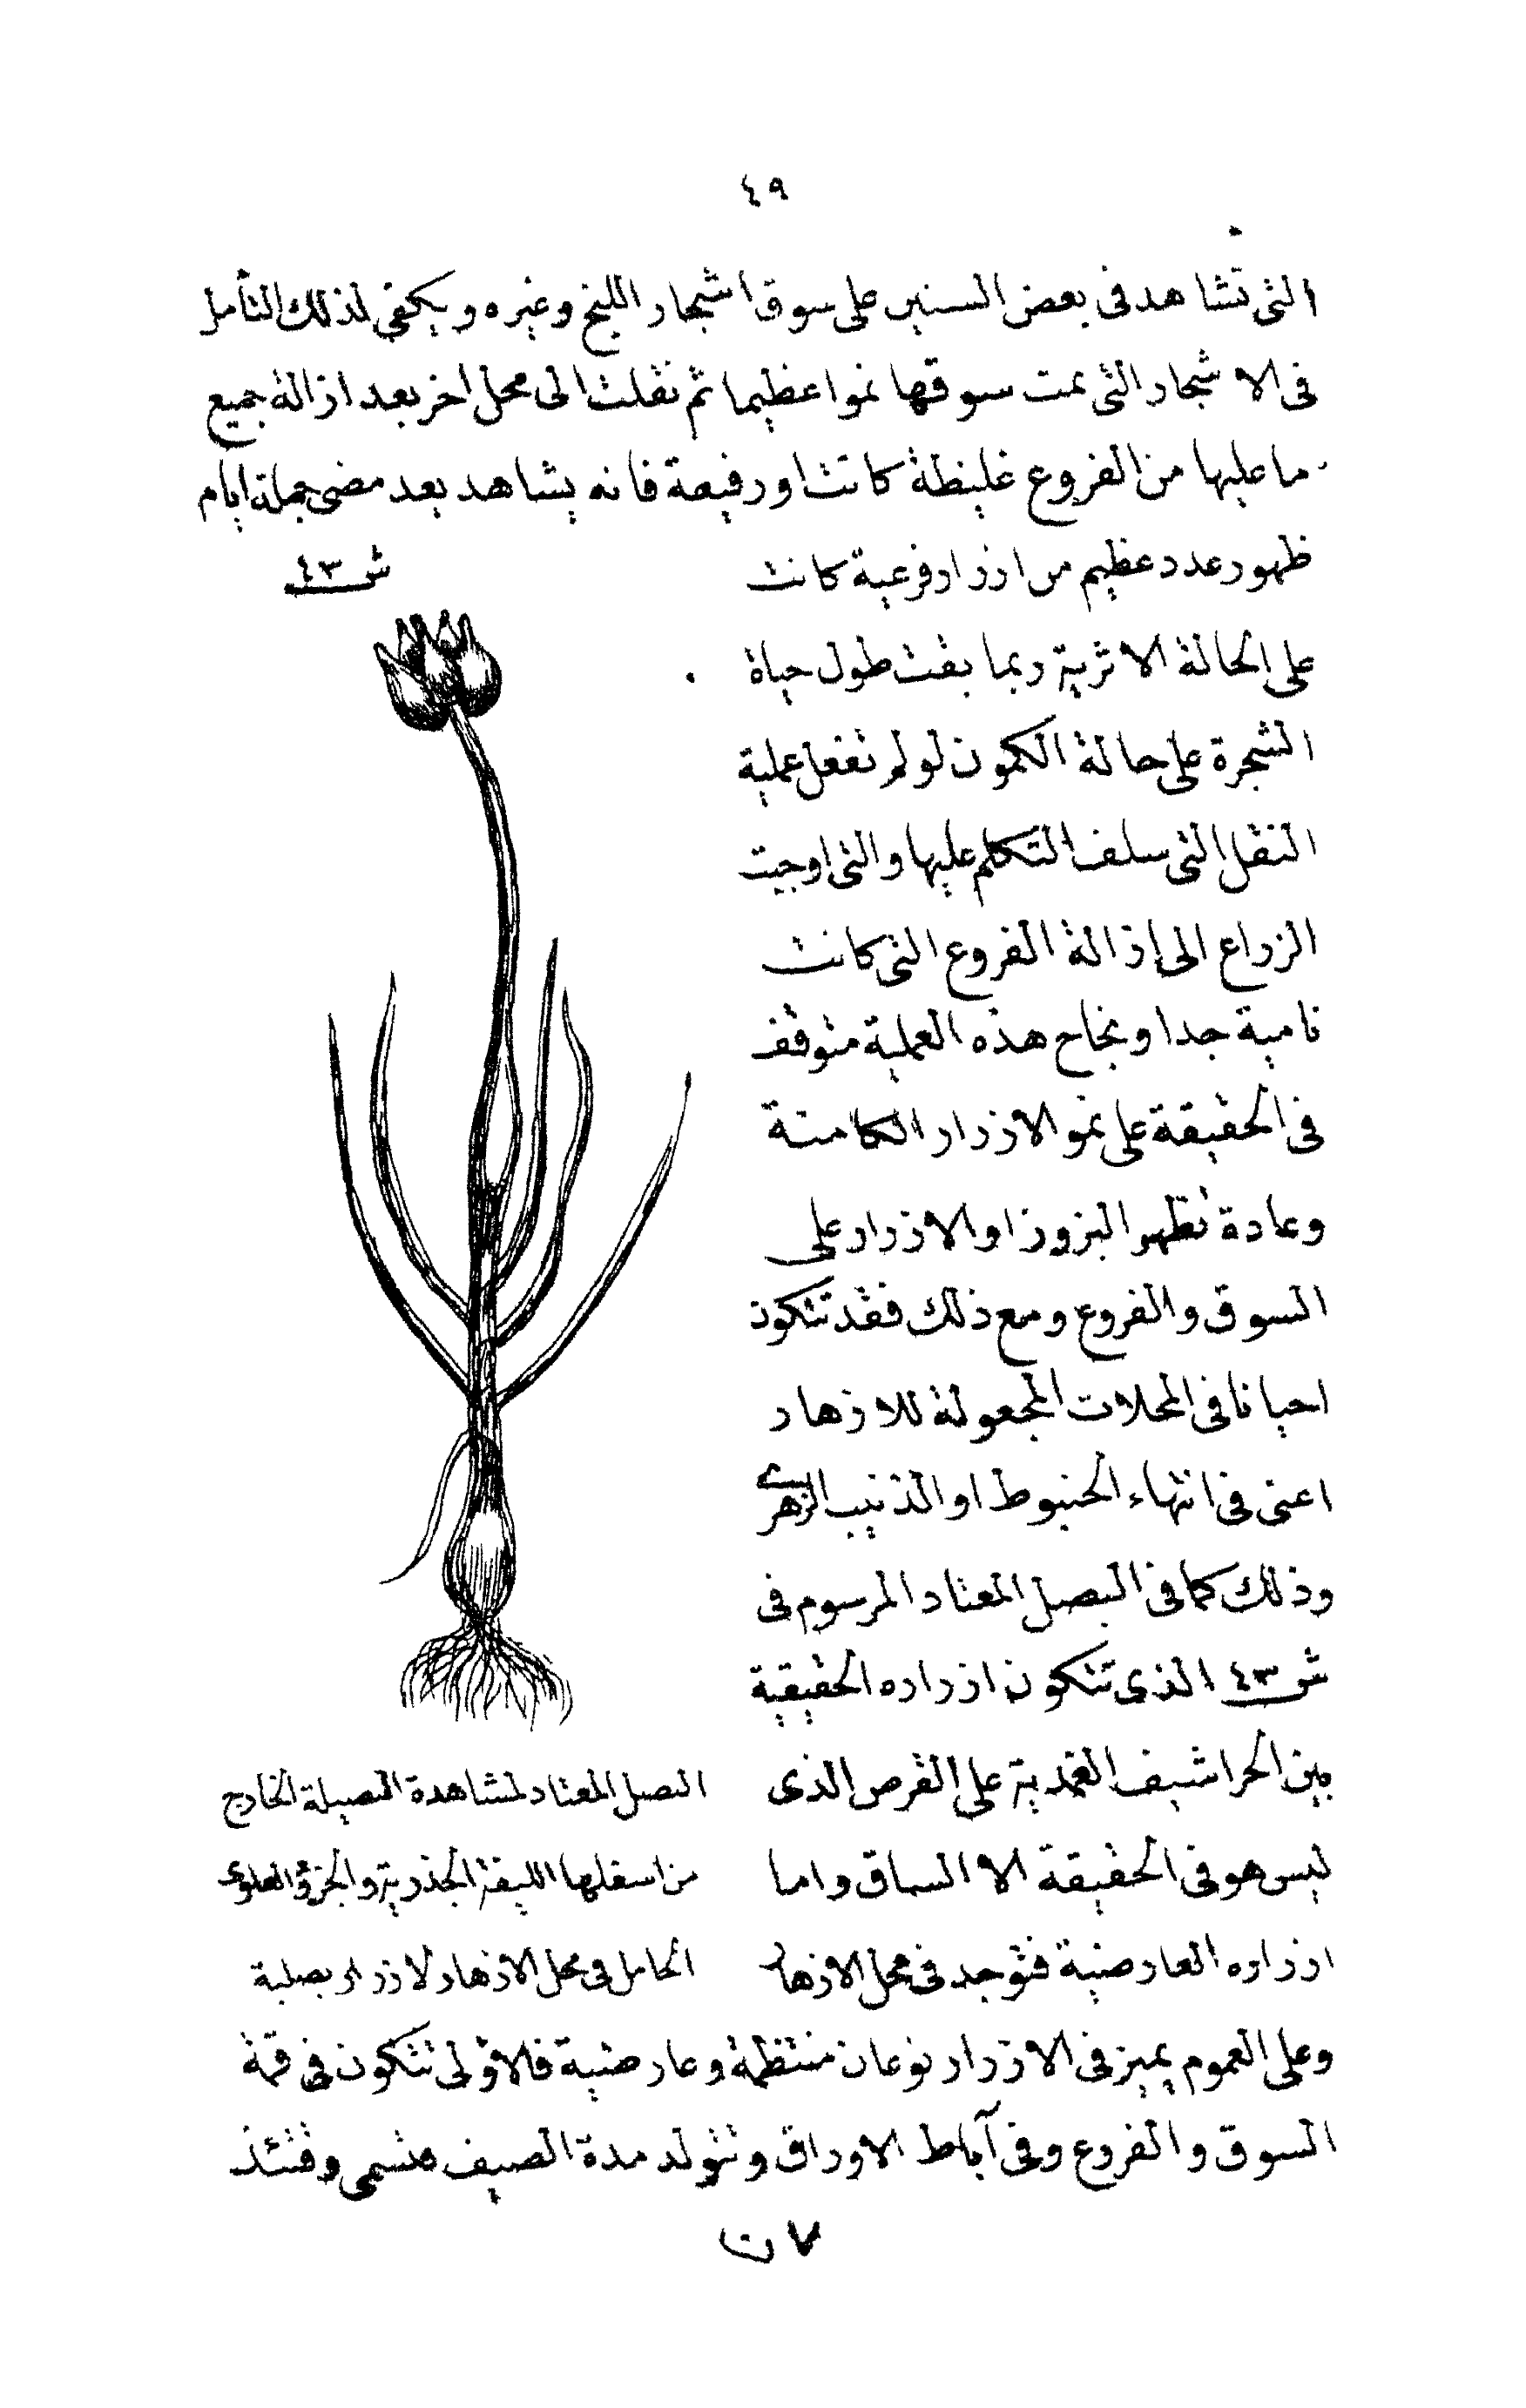 ٤٩
التى تشاهد فى بعض السنين على سوق اشجار اللبخ وغيره ويكفى لذلك التأمل
فى الاشجار التى نمت سوقها نموا عظيما ثم نقلت الى محل اخر بعد ازالة جميع
ما عليها من الفروع غليظة كانت او رفيعة فانه يشاهد بعد مضى جملة ايام
ظهور عدد عظيم من ازرار فرعية كانت
على الحالة الاثرية ربما بقت طول حياة
الشجرة على حالة الكمون لو لم تفعل عملية
النقل التى سلف التكلم عليها والتى اوجبت
الزراع الى إزالة الفروع التى كانت
نامية جدا ونجاح هذه العملية متوقف
فى الحقيقة على نمو الازرار الكامنة
وعادة تظهر البزوز او الازرار على
السوق والفروع ومع ذلك فقد تتكون
احيانا فى المحلات المجعولة للازهار
اعنى فى انتهاء الحنبوط او الذنيب الزهرى
وذلك كما فى البصل المعتاد المرسوم فى
ش ٤٣ الذى تتكون ازراره الحقيقية
بين الحراشيف الغمدية على القرص الذى
ليس هو فى الحقيقة الا الساق واما
ازراره العارضية فتوجد فى محل الازهار
ش ٤٣
البصل المعتاد لمشاهدة البصيلة الخارج
من اسفلها الليفة الجذرية والجزؤ العلوى
الحامل فى محل الازهار لازرار بصلية
وعلى العموم يميز فى الازرار نوعان منتظمة وعارضية فالاولى تتكون فى قمة
السوق والفروع وفى آباط الاوراق وتتولد مدة الصيف فتسمى وقتئذ
٧ ن